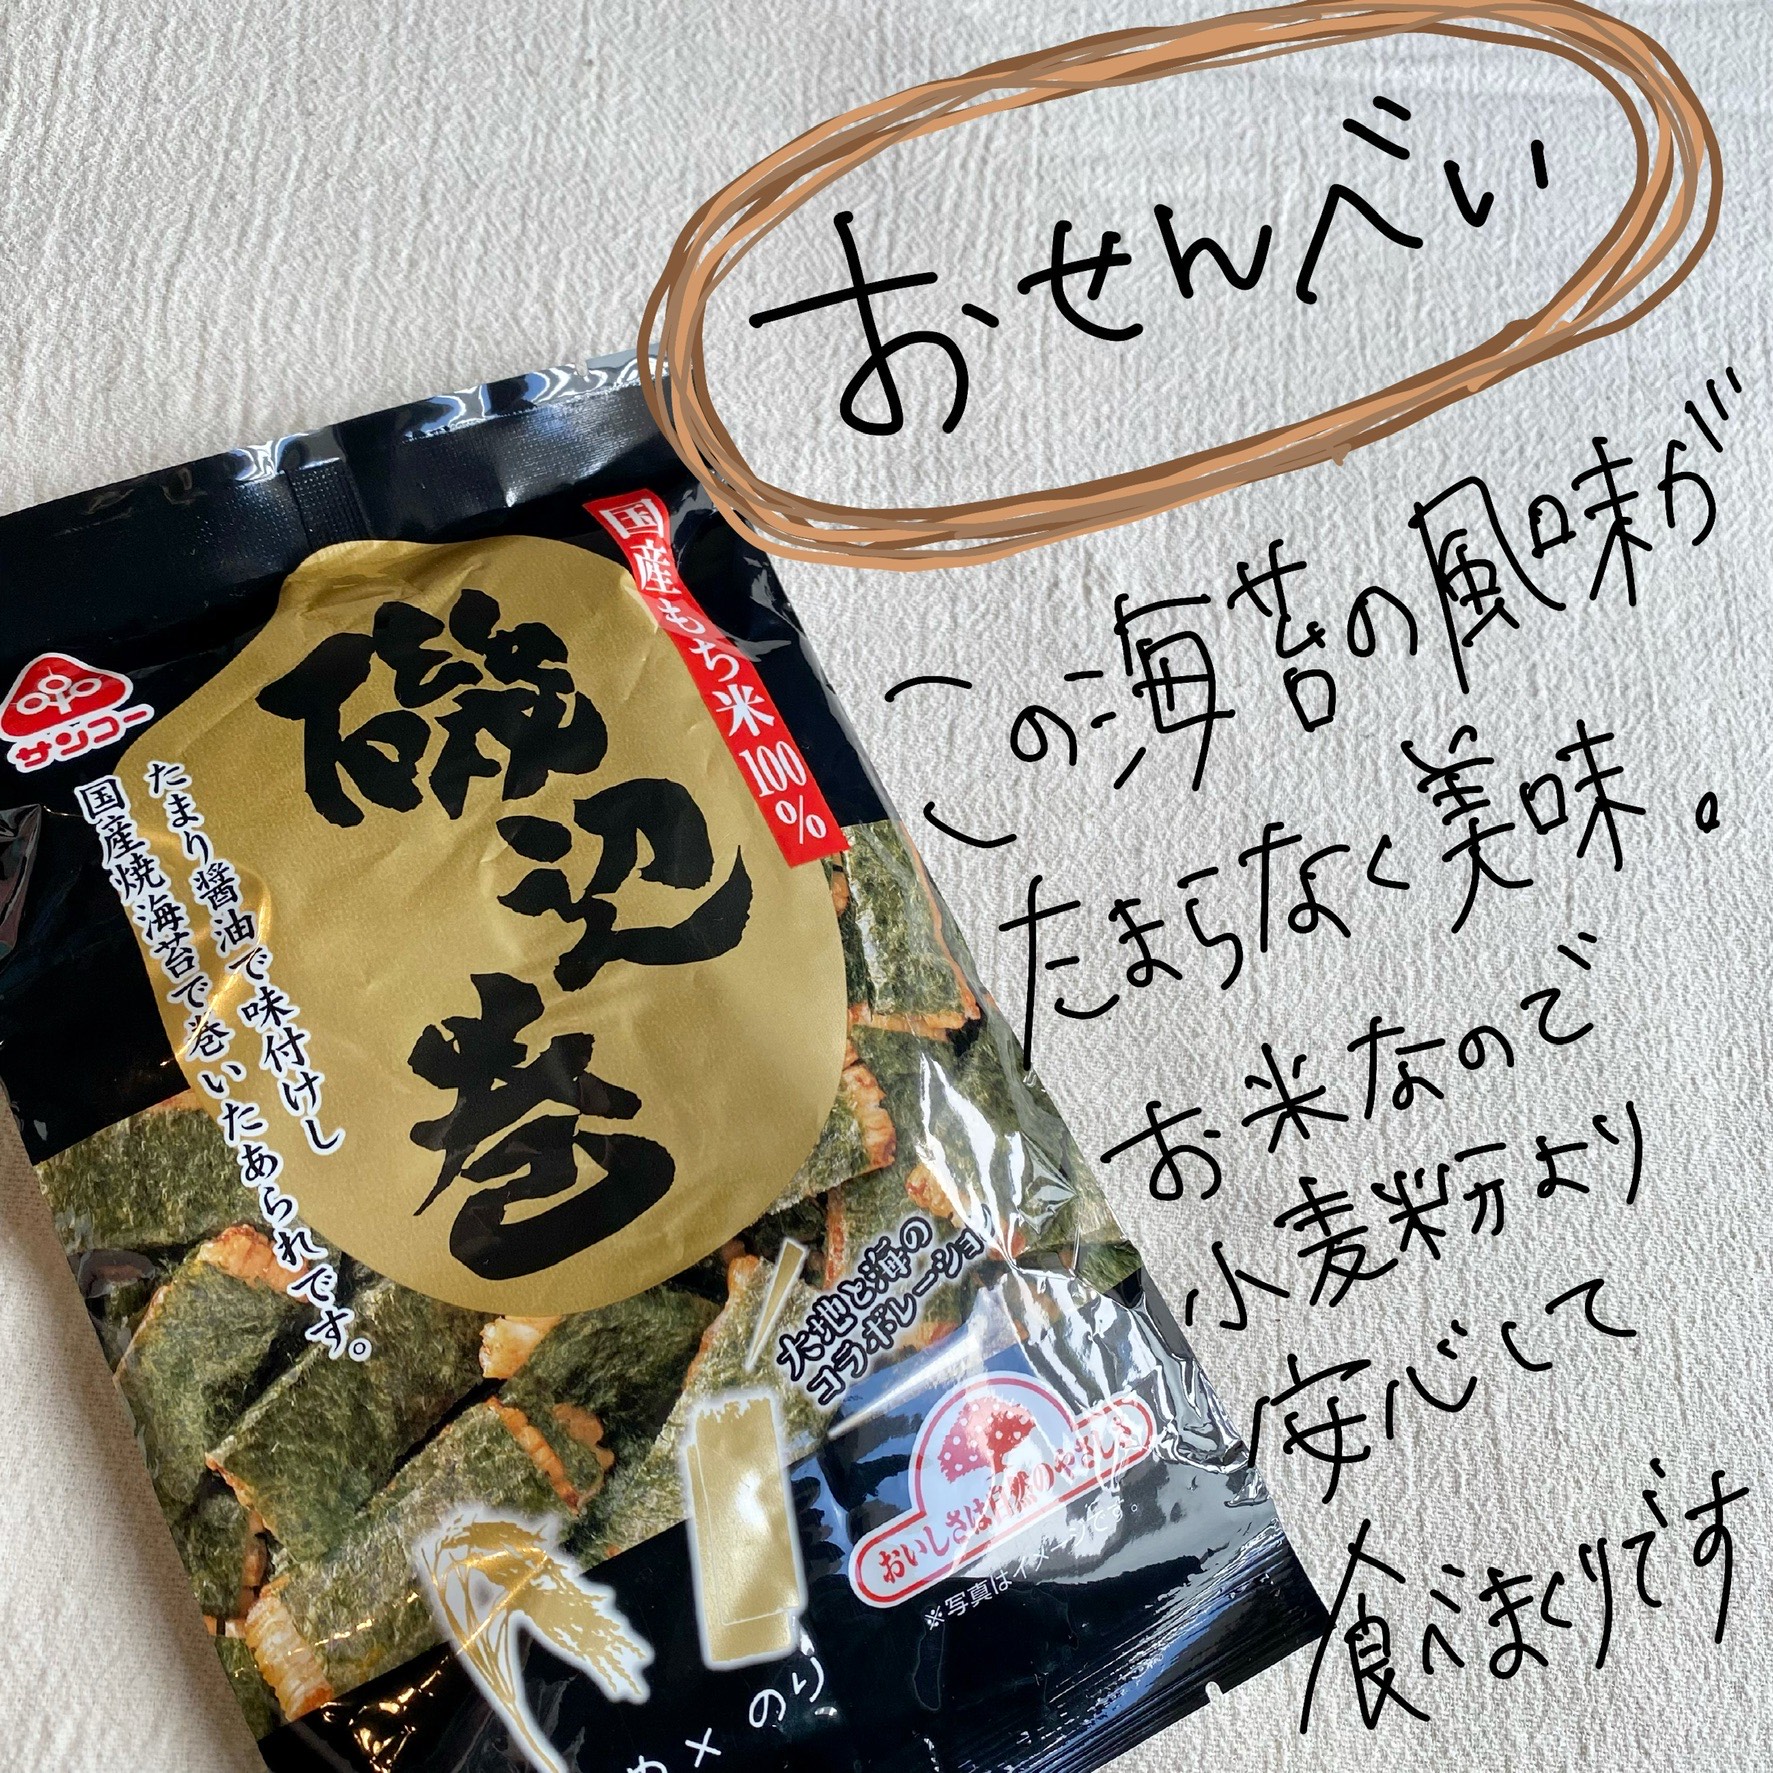 おせんべい
この海苔の風味が
たまらなく美味。
お米なので
小麦粉より
安心して
食べまくりです
サンコー
国産もち米100%
磯辺巻
たまり醤油で味付けし
国産焼海苔で巻いたあられです。
大地と海の
コラボレーショ
おいしさは自然のやさしさ
※写真はイメージです。
× のり